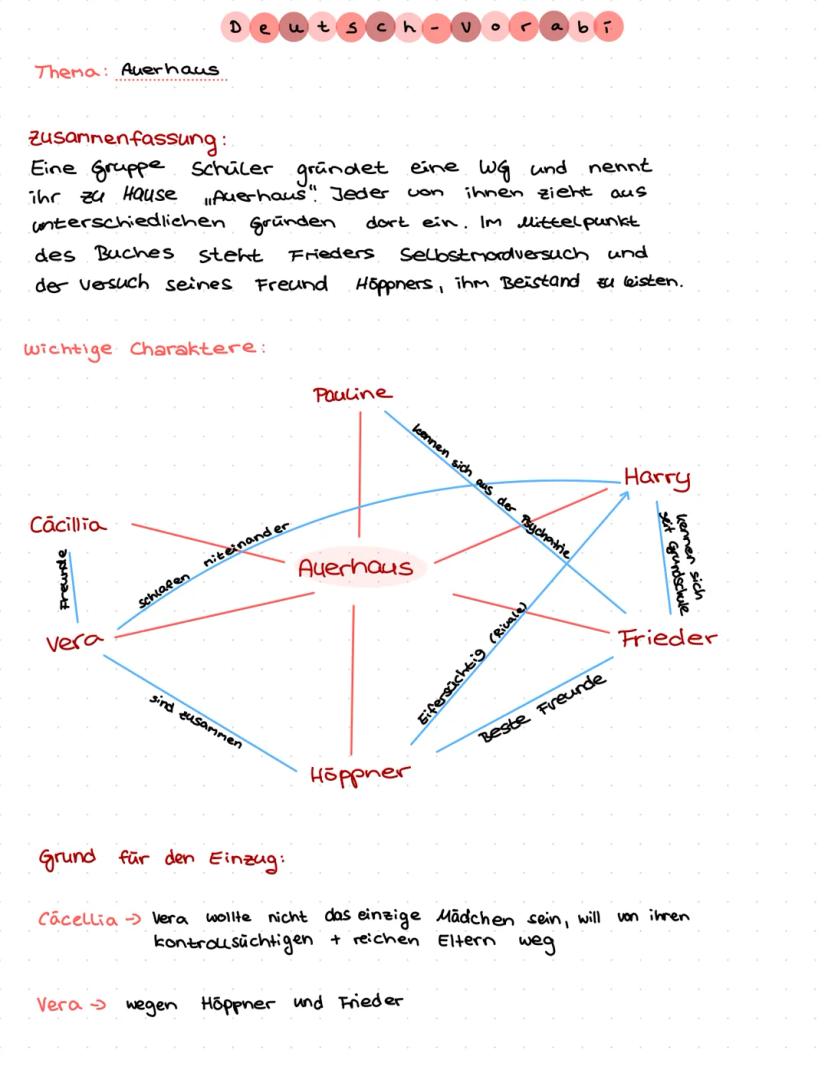 Deutsch-Vorabi
Thema: Auerhaus
Zusammenfassung:
Eine Gruppe Schüler gründet eine WG und nennt
ihr zu Hause „Auerhaus". Jeder von ihnen zieht aus
unterschiedlichen Gründen dort ein. Im Mittelpunkt
des Buches steht Frieders Selbstmordversuch und
der Versuch seines Freund Höppners, ihm Beistand zu leisten.
wichtige Charaktere:
Pauline
kennen sich aus der Psychatrie
Harry
Cäcillia
schlafen miteinander
kennen sich
seit Grundschule
Freunde
Auerhaus
Vera
Frieder
Eifersüchtig (Rivale)
sind zusammen
Beste Freunde
Höppner
Grund für den Einzug:
Cäcellia → Vera wollte nicht das einzige Mädchen sein, will von ihren
kontrollsüchtigen + reichen Eltern weg
Vera → wegen Höppner und Frieder